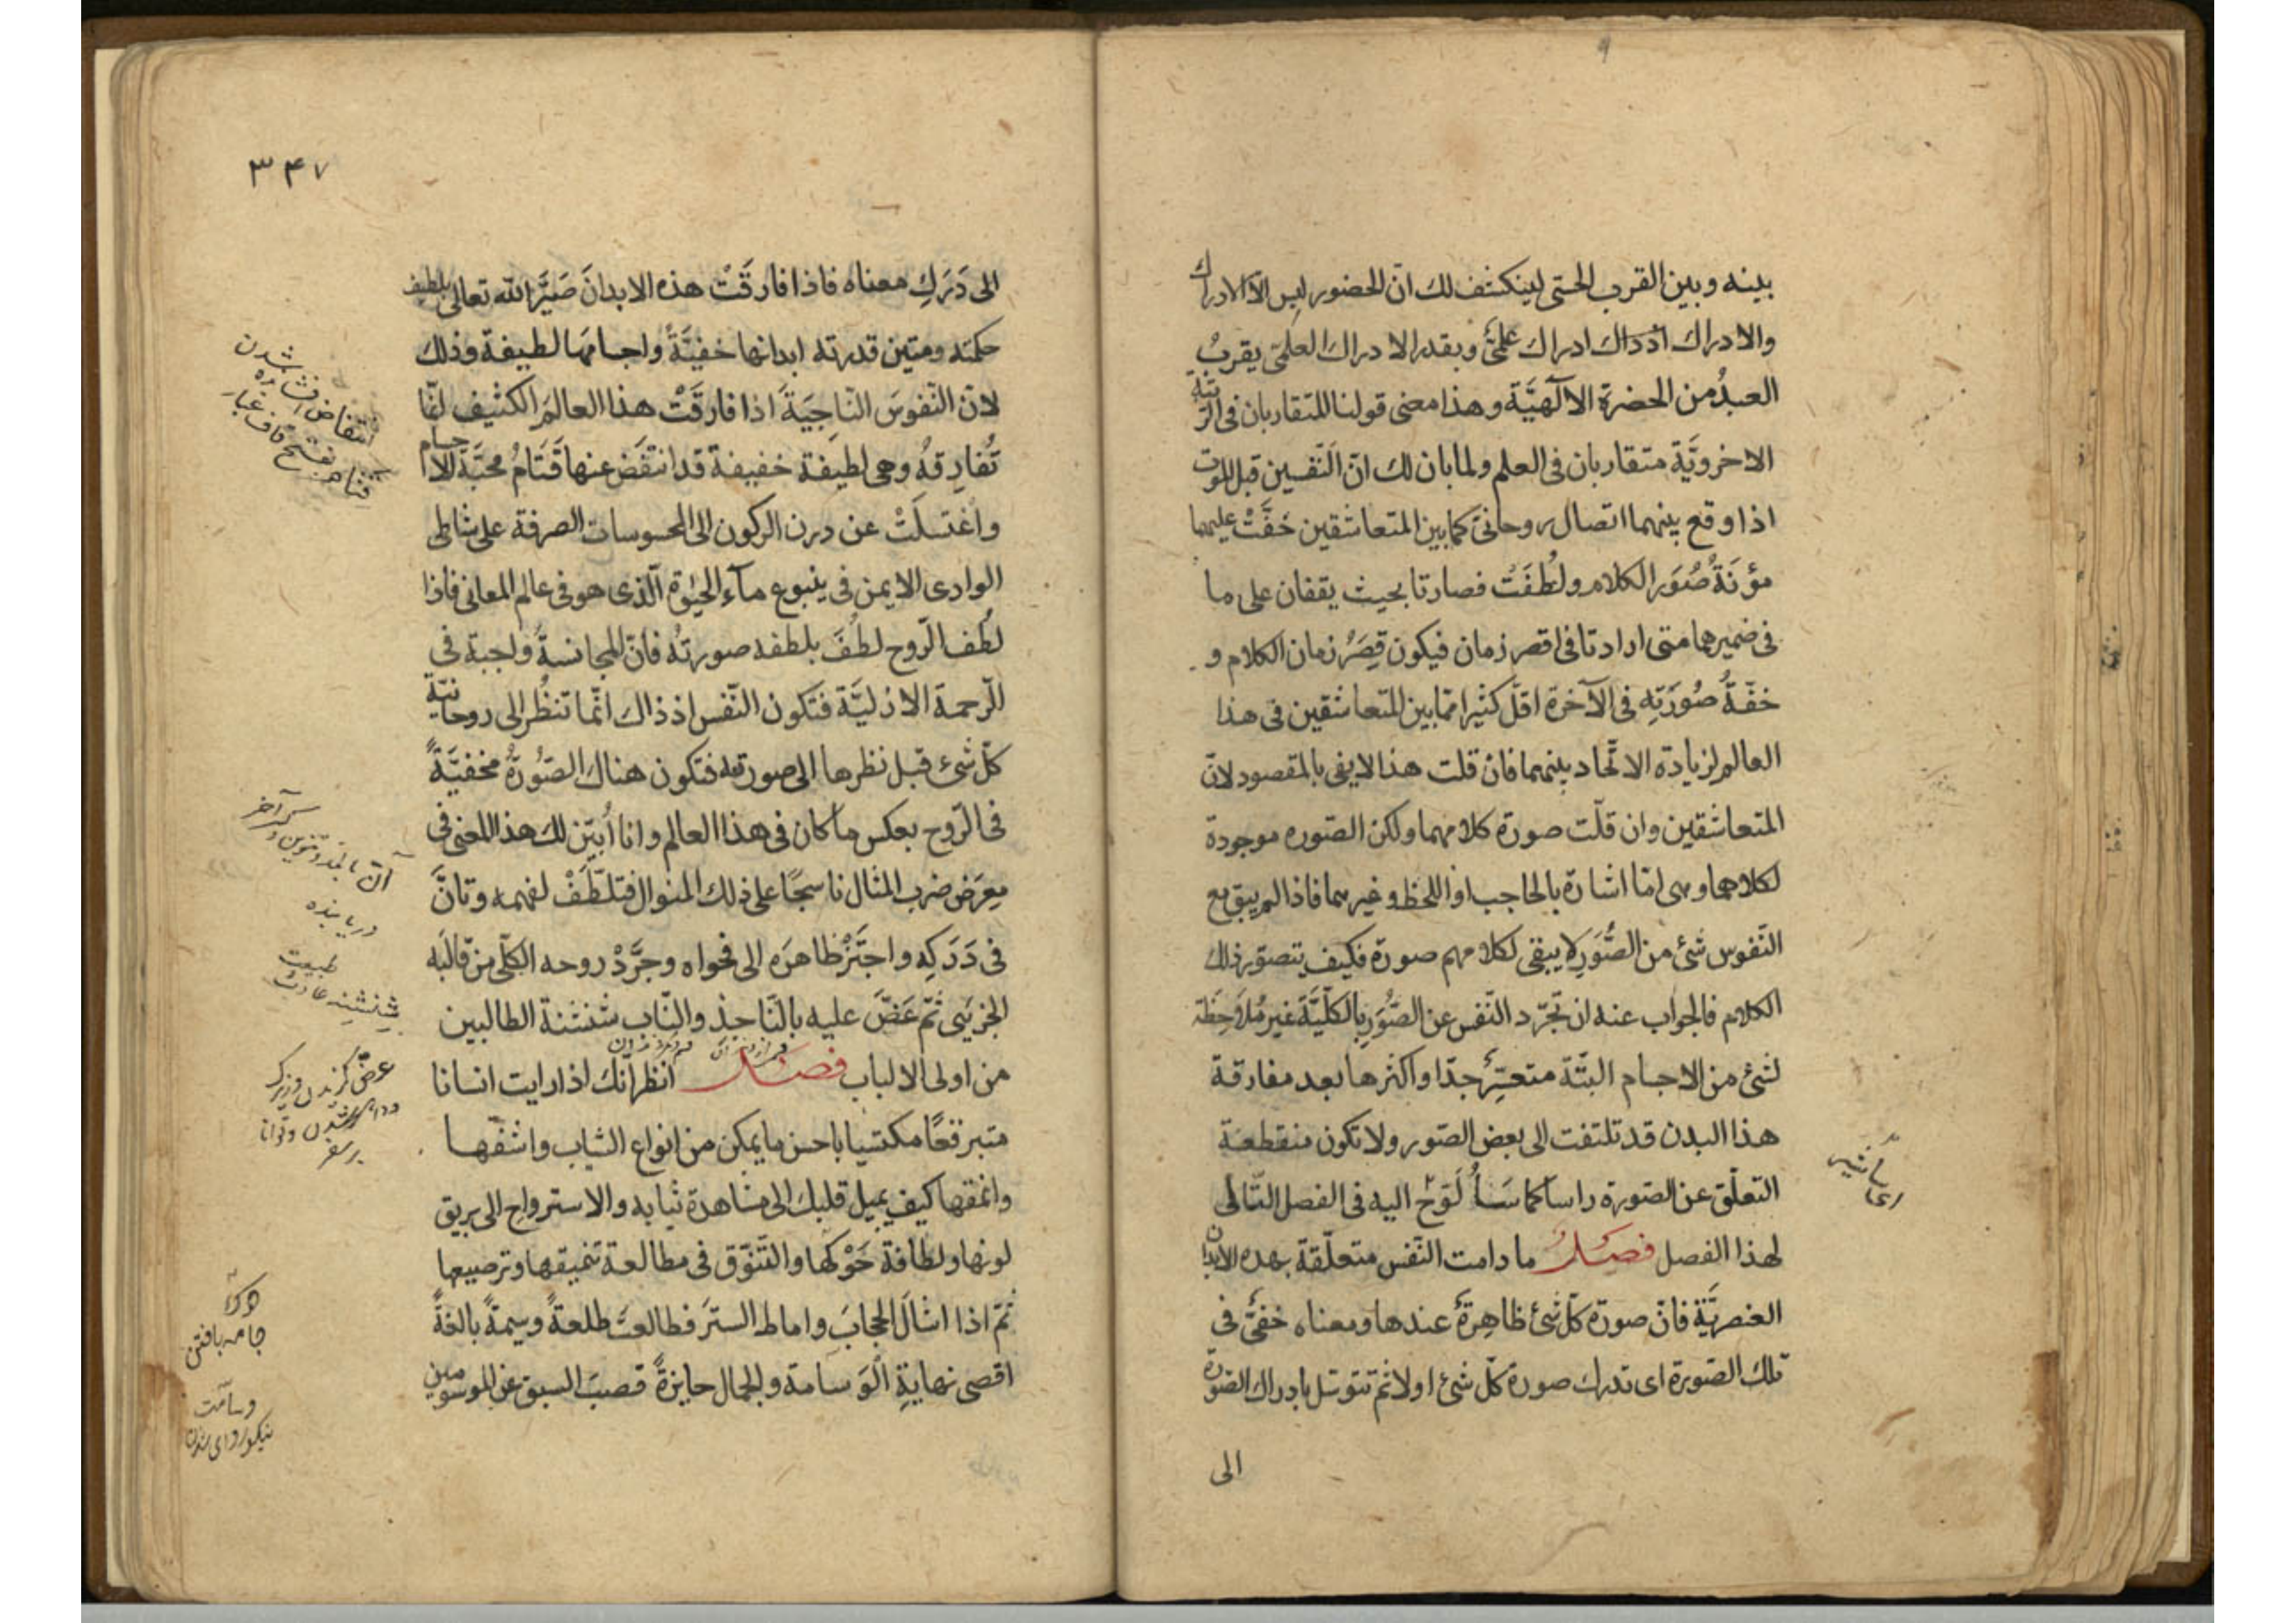 بينه وبين القرب الحسّى لينكشف لك انّ الحضور ليس الّا الادراك
والادراك اذ ذاك ادراك علمىٌّ وبقدر الادراك العلمىّ يقربُ
العبدُ من الحضرة الالٓهيَّة وهذا معنى قولنا المتقاربان فى الرّتبة
الاخرويَّة متقاربان فى العلم ولما بان لك انّ النّفسين قبل الموت
اذا وقع بينهما اتصال روحانىّ كما بين المتعاشقين خفَّتْ عليهما
مؤنَةُ صُوَر الكلام ولَطُفَتْ فصارتا بحيث يقفان على ما
فى ضميرهما متى ارادتا فى اقصر زمان فيكون قِصَرُ زمان الكلام و
خفّةُ صُورَتِه فى الآخرة اقلّ كثيرا ممّا بين المتعاشقين فى هذا
العالم لزيادة الاتّحاد بينهما فان قلت هذا لا يفى بالمقصود لانّ
المتعاشقين وان قلّت صورة كلامهما ولكن الصّوره موجودة
لكلامهما وهى امّا اشارة بالحاجب او اللحظ وغيرهما فاذا لم يبق مع
النّفوس شئ من الصُّوَر لا يبقى لكلامهم صورة فكيف يتصوّر ذلك
الكلام فالجواب عنه ان تجرّد النّفس عن الصُّوَر بالكلّيَّة غير مُلاحِظَة
لشئ من الاجسام البتّة متعسِّرٌ جدّا واكثرها بعد مفارقة
هذا البدن قد تلتفت الى بعض الصّور ولا تكون منقطعة
التعلّق عن الصّورة راسا كما سَأُلَوِّحُ اليه فى الفصل التّالى
لهذا الفصل فصلٌ ما دامت النّفس متعلّقة بهذه الابدان
العنصريَّة فانّ صورة كلّ شئ ظاهِرةٌ عندها ومعناه خفىٌّ فى
تلك الصّورة اى تدرك صورة كلّ شئ اولا ثم تتوسّل بادراك الصّورة
الى
۳۴۷
الى دَرَكِ معناه فاذا فارقَتْ هذه الابدانَ صَيَّرَ الله تعالى بلطيف
حكمته ومتين قدرته ابدانها خفيَّةً واجسامَها لطيفة وذلك
لانّ النّفوسَ النّاجِيَةَ اذا فارقَتْ هذا العالمَ الكثيف انّما
تُفارِقهُ وهى لطيفة خفيفة قد انتقَضَ عنها قَتَامُ محبّة الاجسام
واغتسلَتْ عن درن الركون الى المحسوسات الصرفة على شاطى
الوادى الايمن فى ينبوع مآء الحيٰوة الّذى هو فى عالم المعانى فاذا
لطُف الرّوح لطُفَ بلطفه صورتُه فانّ المجانسةَ واجبة فى
الرّحمة الازليَّة فتكون النّفس اذ ذاك انّما تنظُر الى روحانيّة
كلّ شئ قبل نظرها الى صورته فتكون هناك الصُّورةُ مخفيَّةً
فى الرّوح بعكس ما كان فى هذا العالم وانا أُبيِّن لك هذا المعنى فى
معِرَض ضرب المثال ناسجًا على ذلك المنوال فتلطَّفْ لفهمه وتانَّ
فى دَرَكِه واجتَزْ ظاهرَه الى فحواه وجرِّدْ روحه الكلّى من قالَبه
الجزئىّ ثمّ عَضَّ عليه بالنّاجذ والنّاب شنشنة الطالبين
من اولى الالباب فصل انظر انّك اذا رايت انسانا
متبرقعًا مكتسيا باحسن ما يمكن من انواع الثياب واشفّها
وانمقها كيف يميل قلبك الى مشاهدة ثيابه والاسترواح الى بريق
لونها ولطافة حَوْكها والتّنوّق فى مطالعة تنميقها وترصيعها
ثمّ اذا اشالَ الحجابَ واماط السترَ فطالعتَ طلعةً وسيمةً بالغةً
اقصى نهايةِ الوَسامة والجمال حايزةً قصبَ السبق عن الموسومين
انتفاض افشانده شدن
قتام بفتح قاف غبار
دريابنده
طبيعت
شنشنه عادت
عضّ كزيدن وزيرك
بر سفر
حوك
جامه بافتن
وسامت
نيكو روى شدن